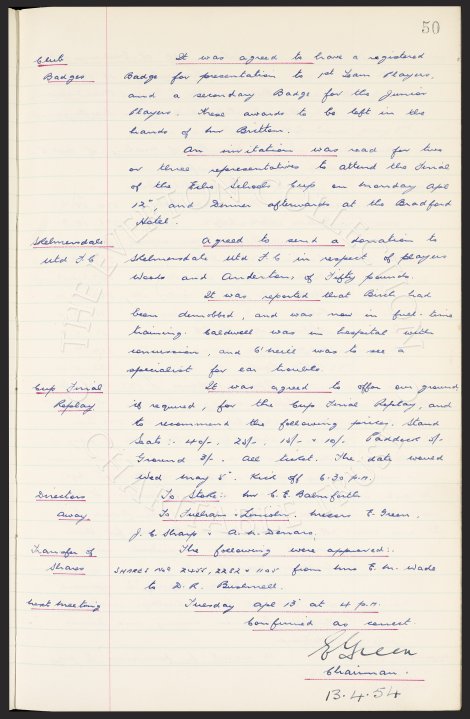 50
Club It was agreed to have a registered
Badges Badge for presentation to 1st Team Players,
and a secondary Badge for the Junior
Players. These awards to be left in the
hands of Mr Britten.
An invitation was read for two
or three representatives to attend the Final
of the Echo Schools Cup on Monday Apl
12th, and Dinner afterwards at the Bradford
Hotel.
Skelmersdale Agreed to send a donation to
Utd F.C Skelmersdale Utd F.C in respect of players
Woods and Anderton, of Fifty pounds.
It was reported that Birch had
been demobbed, and was now in full-time
training. Caldwell was in hospital with
concussion, and O'Neill was to see a
specialist for ear trouble.
Cup Final It was agreed to offer our ground
Replay. if required, for the Cup Final Replay, and
to recommend the following prices. Stand
Seats:- 40/-. 25/-. 15/- & 10/-. Paddock 5/-
Ground 3/-. All ticket. The date would
Wed May 5th. Kick off 6.30 p.m.
Directors To Stoke:- Mr C. E. Balmforth
Away To Fulham & Lincoln. Messrs E. Green,
J. C. Sharp &
Transfer of The following were approved:-
Shares SHARES Nos 2455, 2282 & 1105 from Mrs E. M. Wade
to D. R. Bushnell.
Next Meeting Tuesday Apl 13th at 4 p.m.
Confirmed as correct
E Green
Chairman.
13.4.54
THE EVERTON COLLECTION
CHARITABLE